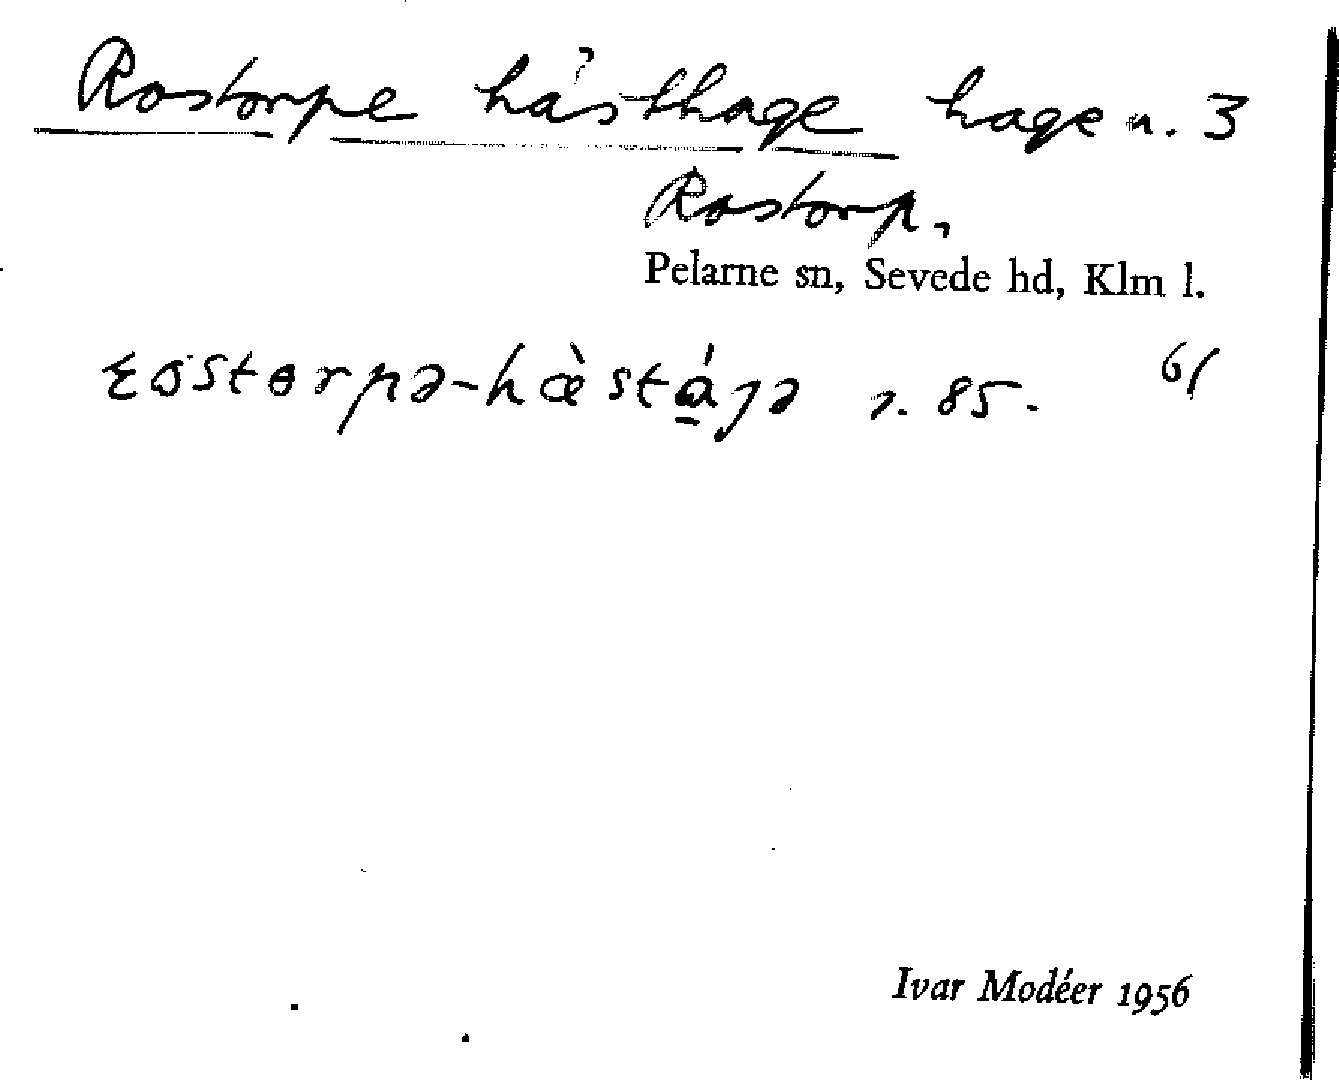 Rostorpe hästhage hage n. 3
Rostorp.
Pelarne sn, Sevede hd, Klm l.
ꞅostorpə-hæ̀stá̠gə s. 85. 61
Ivar Modéer 1956